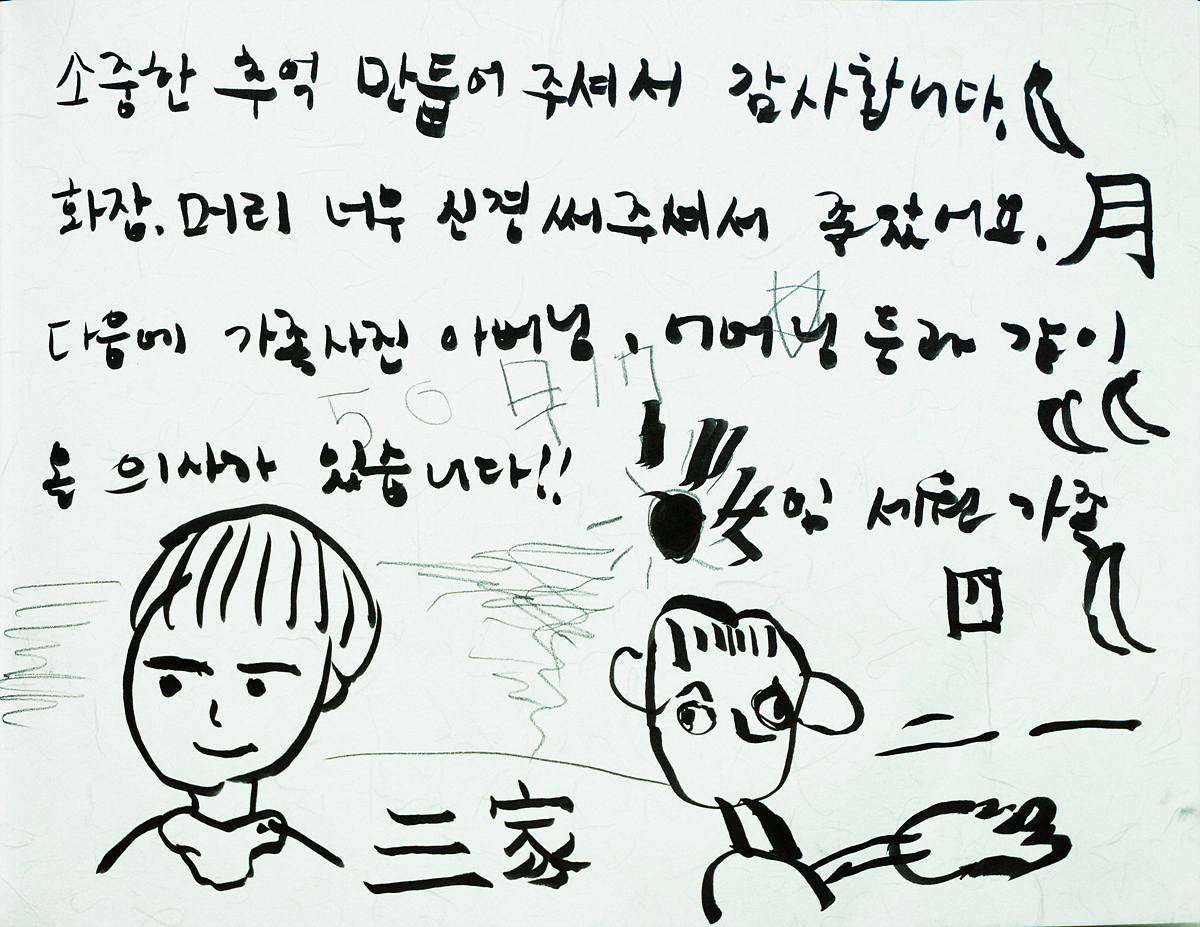 소중한 추억 만들어 주셔서 감사합니다.
화장, 머리 너무 신경써주셔서 좋았어요.
月
다음에 가족사진 아버님, 어머님 등과 같이
올 의사가 있습니다!!
임 세원 가족
二 一
三 家